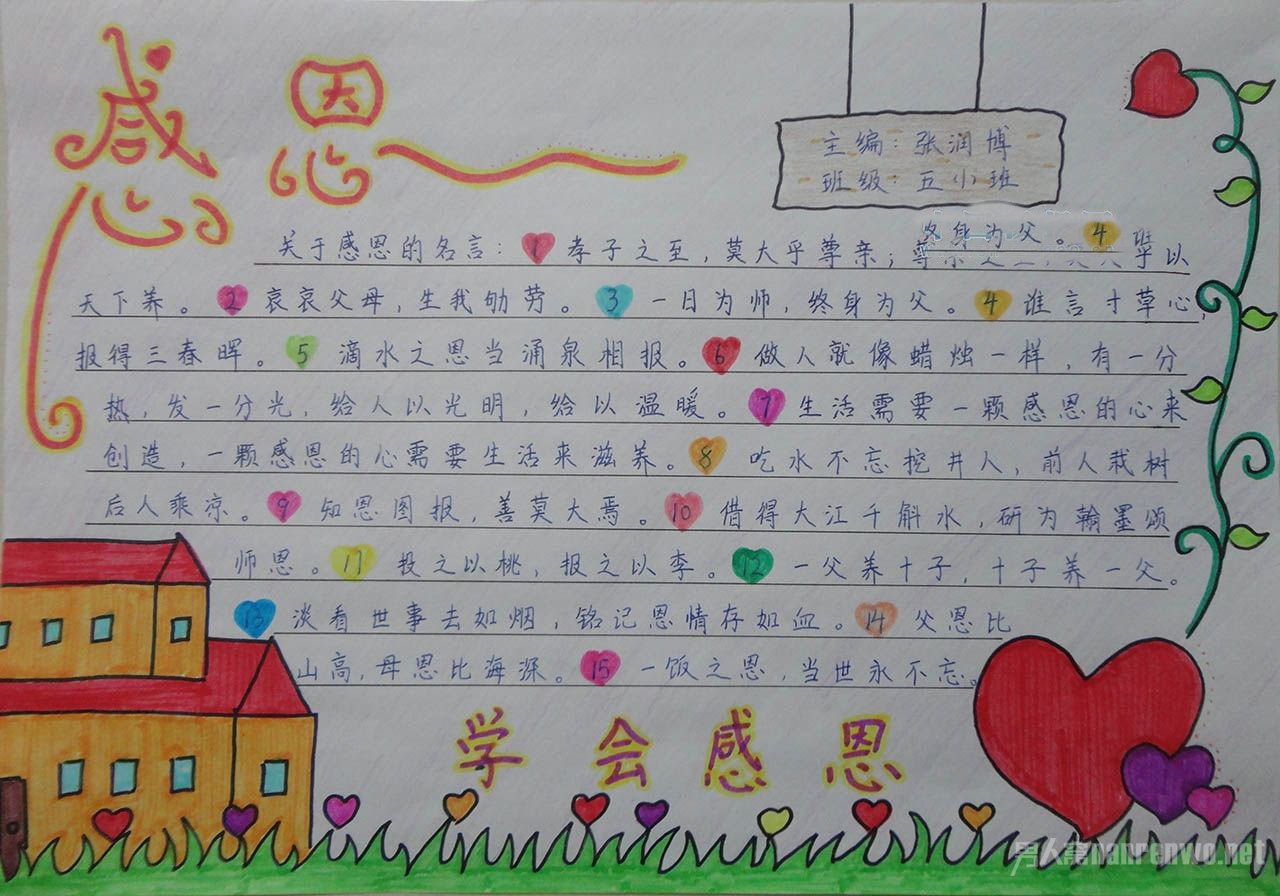 感恩
主编：张润博
班级：五小班
终身为父。4 班
关于感恩的名言：1 孝子之至，莫大乎尊亲；尊亲
以
天下养。2 哀哀父母，生我劬劳。3 一日为师，终身为父。4 谁言寸草心，
报得三春晖。5 滴水之恩当涌泉相报。6 做人就像蜡烛一样，有一分
热，发一分光，给人以光明，给以温暖。7 生活需要一颗感恩的心来
创造，一颗感恩的心需要生活来滋养。8 吃水不忘挖井人，前人栽树
后人乘凉。9 知恩图报，善莫大焉。10 借得大江千斛水，研为翰墨颂
师恩。11 投之以桃，报之以李。12 一父养十子，十子养一父。
13 淡看世事去如烟，铭记恩情存如血。14 父恩比
山高，母恩比海深。15 一饭之恩，当世永不忘。
学会感恩
男人窝nanrenwo.net